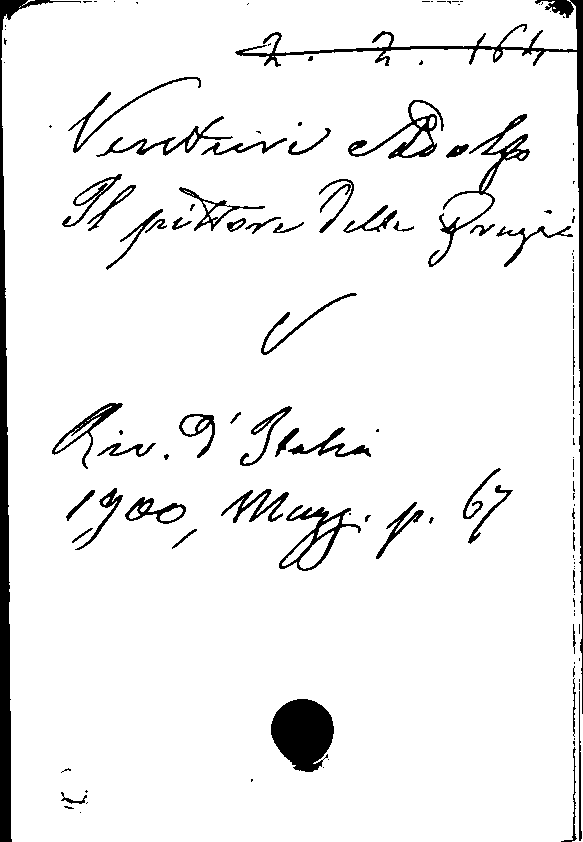 2. 2. 164
Venturi Adolfo
Il pittore delle Grazie
Riv. d'Italia
1900, Magg. p. 67